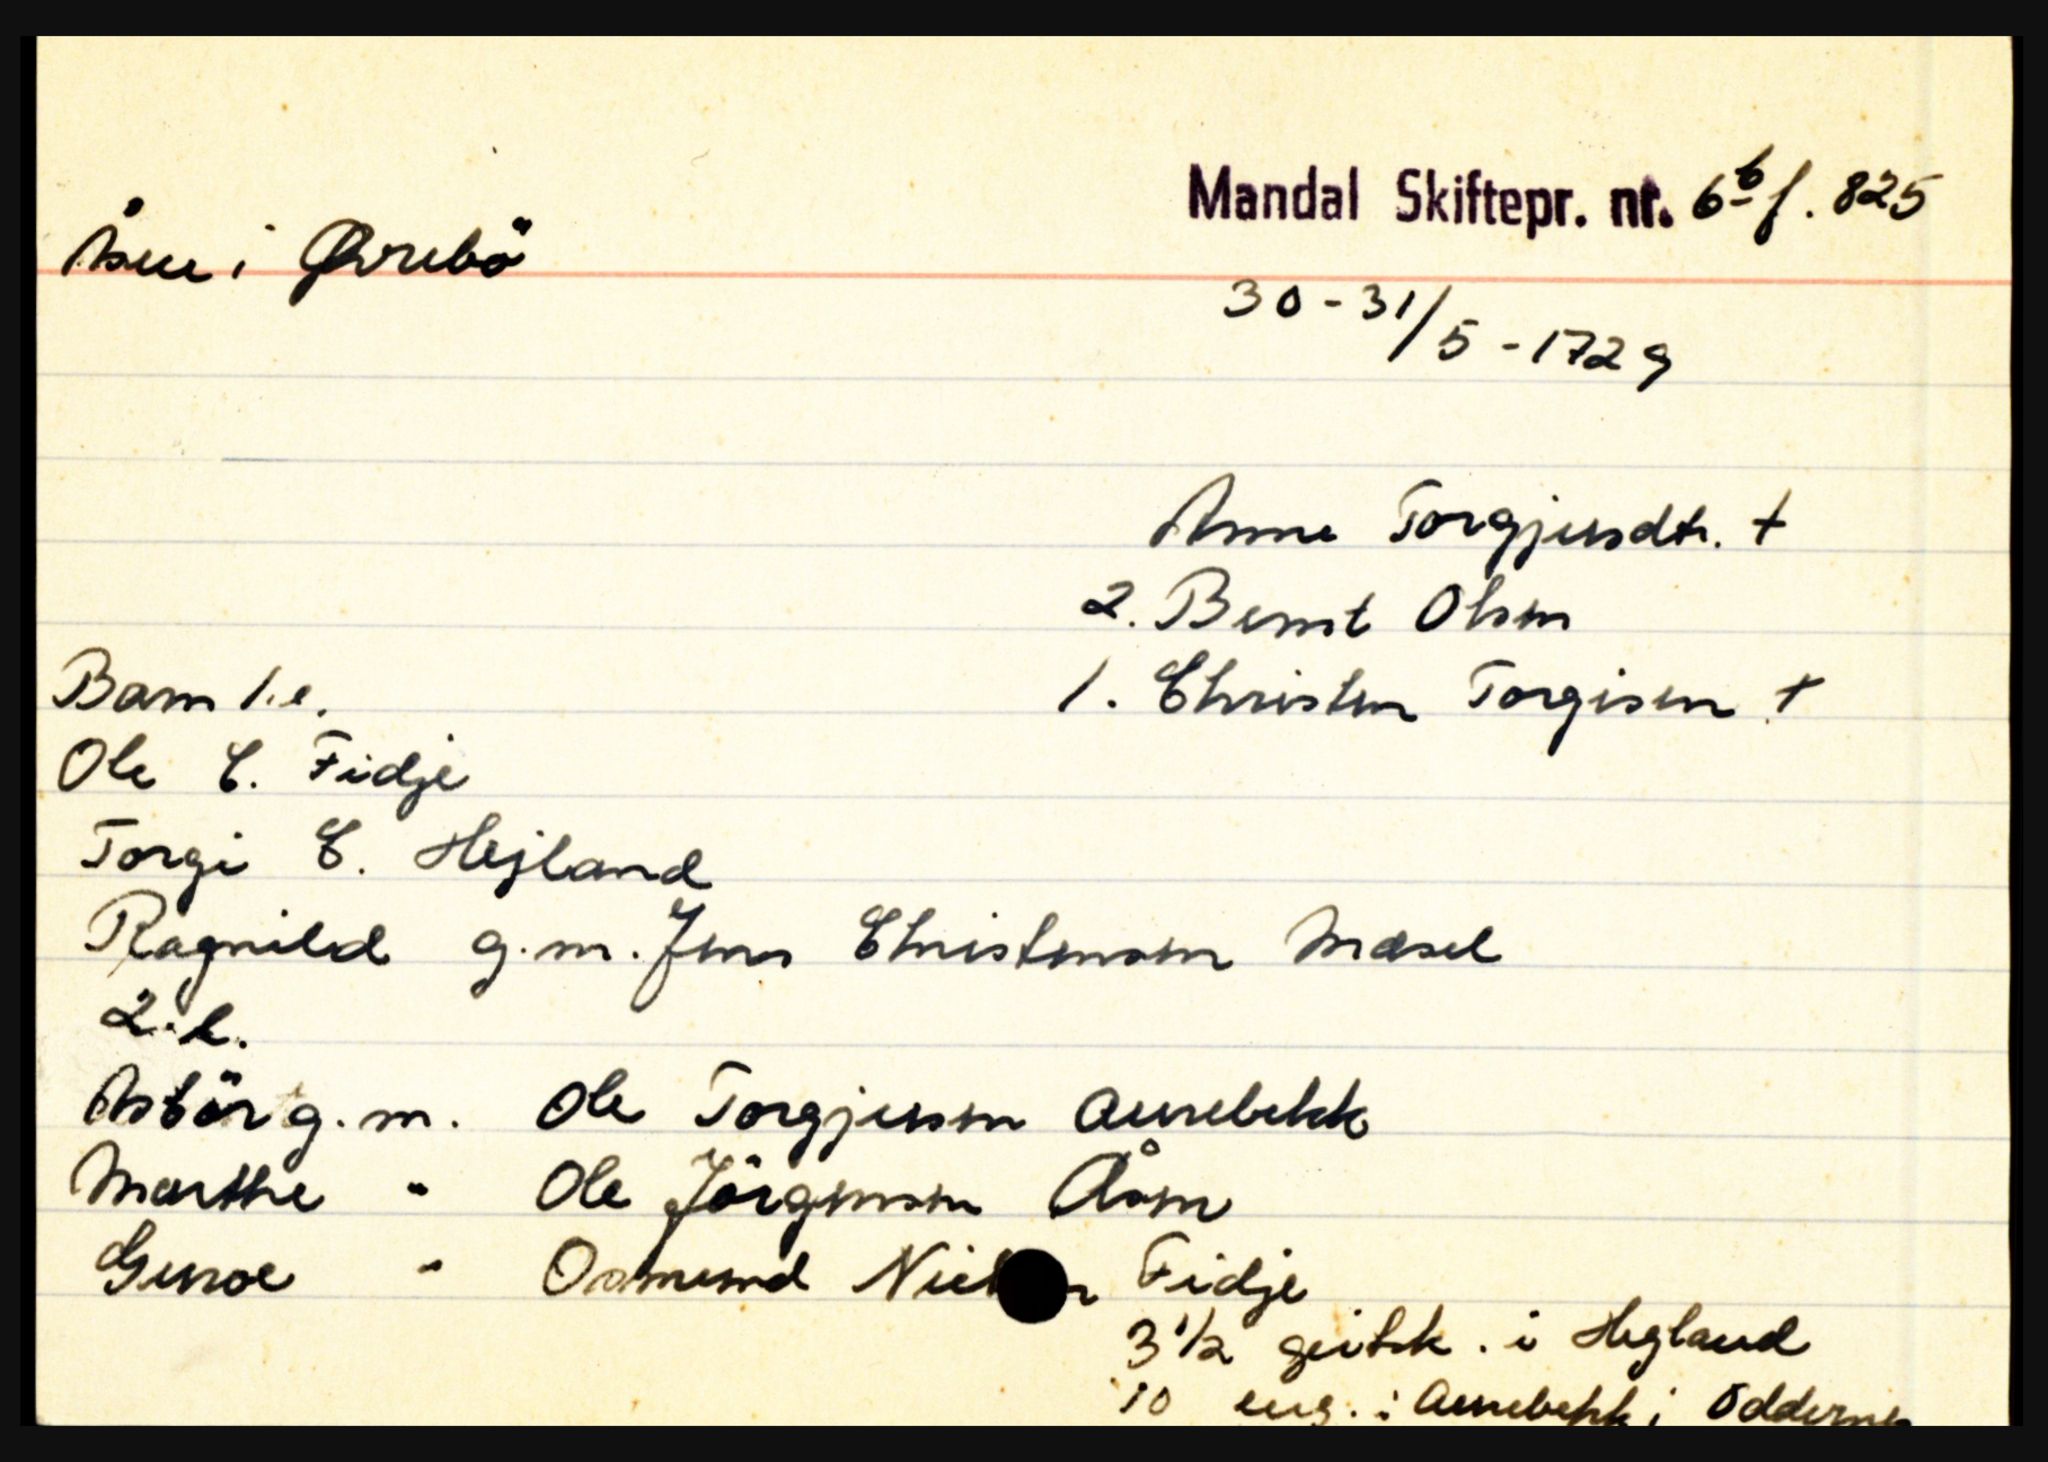 Mandal Skiftepr. nr. 6b f. 825
Åsen i Øvrebö
30-31/5-1729
Anne Torgjersdtr. +
2. Bernt Olsen
1. Christen Torgisen +
Barn 1.e.
Ole C. Fidje
Torgi C. Hejland
Ragnild g.m. Jens Christensen Mæsel
2.e.
Asbör g.m. Ole Torgjersen Aurebekk
Marthe " Ole Jörgensen Åsen
Guroe " Osmund Fidje
3 1/2 geitsk. i Hegland
10 eng. i Aurebekk i Oddernes